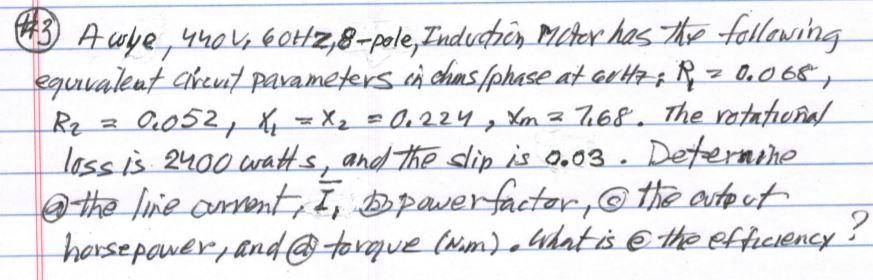 #3 A wye, 440V, 60Hz, 8-pole, Induction Motor has the following
equivalent circuit parameters in ohms/phase at 60Hz: R₁ = 0.068,
R₂ = 0.052, X₁ = X₂ = 0.224, Xm = 7.68. The rotational
loss is 2400 watts, and the slip is 0.03. Determine
ⓐ the line current, I̅, ⓑ power factor, ⓒ the output
horsepower, and ⓓ torque (N.m). What is ⓔ the efficiency?